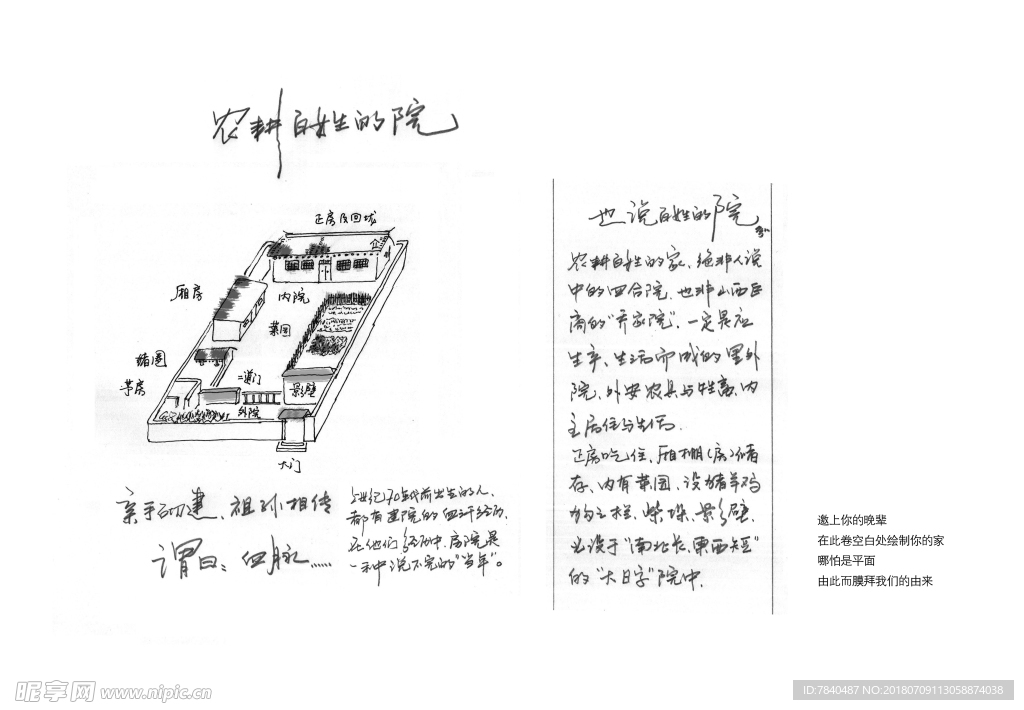 农耕百姓的院
正房民回城
厢房
内院
菜园
猪圈
茅房
二道门
影壁
外院
大门
亲手砌建、祖孙相传
谓曰：血脉……
上世纪70年代前出生的人、
都有建院的血汗经历,
在他们经历中,房院是
一种说不完的“当年”。
也说百姓的院
农耕百姓的家、绝非人说
中的四合院,也非山西巨
商的“乔家院”,一定是在
生产、生活而成的里外
院,外安农具与牲畜,内
主居住与生活.
正房吃住、厢棚(房)储
存、内有菜园,设猪羊鸡
狗之栏,柴垛、影壁,
必设于“南北长、东西短”
的“大日字”院中.
邀上你的晚辈
在此卷空白处绘制你的家
哪怕是平面
由此而膜拜我们的由来
昵享网 www.nipic.cn
ID:7840487 NO:20180709113058874038